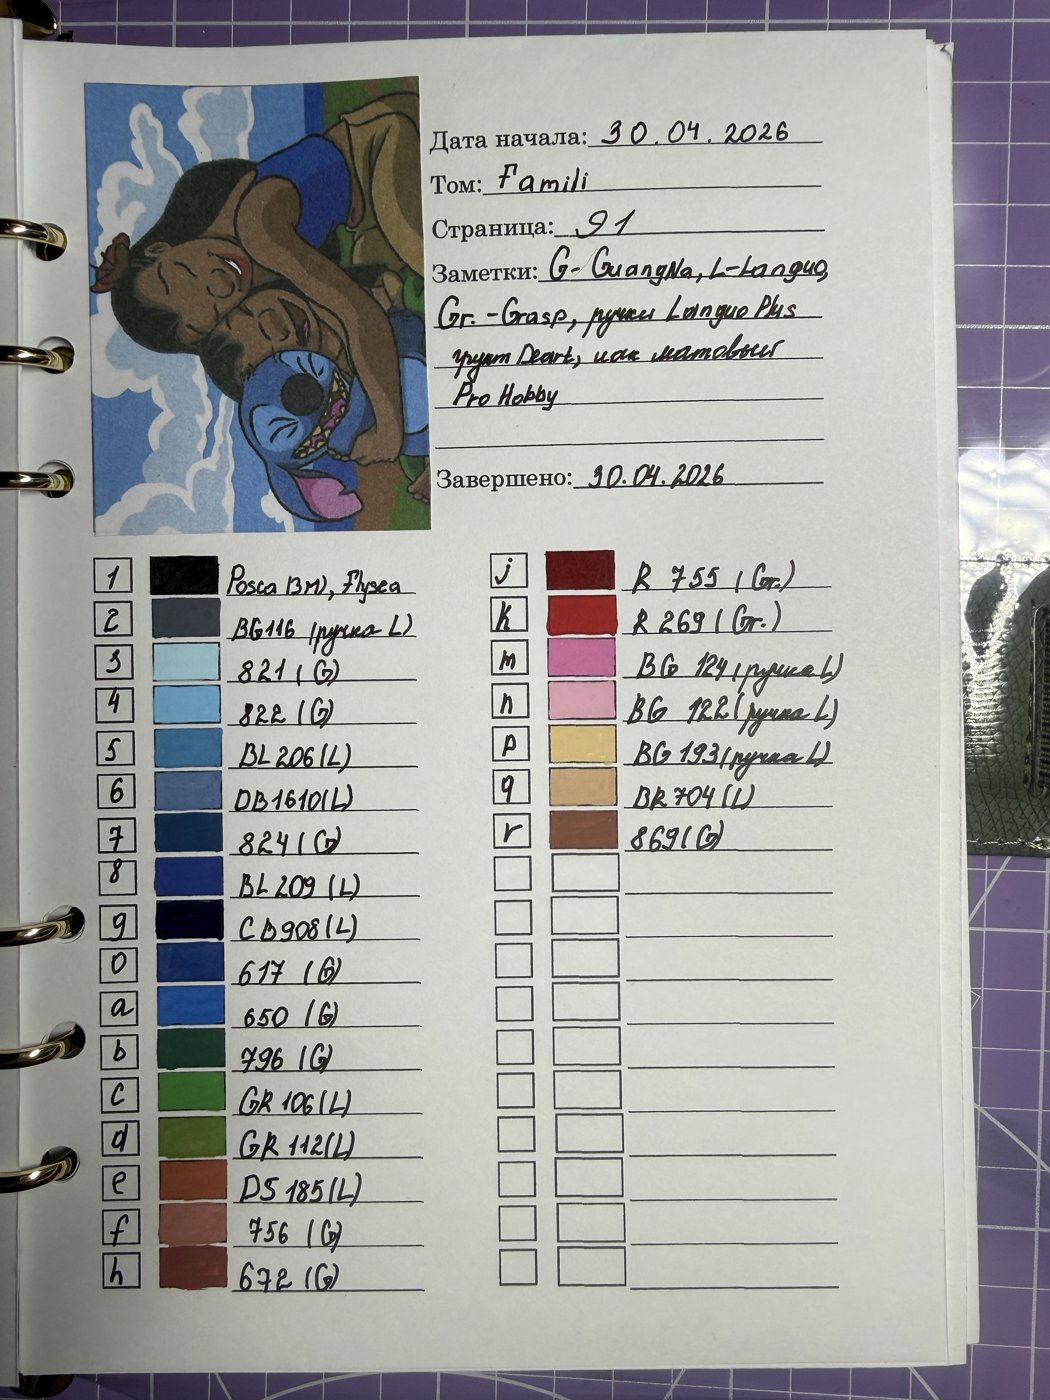 Дата начала: 30.04.2026
Том: Famili
Страница: 91
Заметки: G- GuangNa, L-Languo,
Gr. -Grasp, ручки Languo Plus
грунт Deart, лак матовый
Pro Hobby
Завершено: 30.04.2026
1 Posca (3M), Flysea
2 BG116 (ручка L)
3 821 (G)
4 822 (G)
5 BL206(L)
6 DB1610(L)
7 824 (G)
8 BL209 (L)
9 CB908(L)
0 617 (G)
a 650 (G)
b 796 (G)
c GR106(L)
d GR112(L)
e DS185(L)
f 756 (G)
h 672 (G)
j R 755 (Gr.)
k R 269 (Gr.)
m BG 124 (ручка L)
n BG 122 (ручка L)
p BG193 (ручка L)
q BR704(L)
r 869(G)